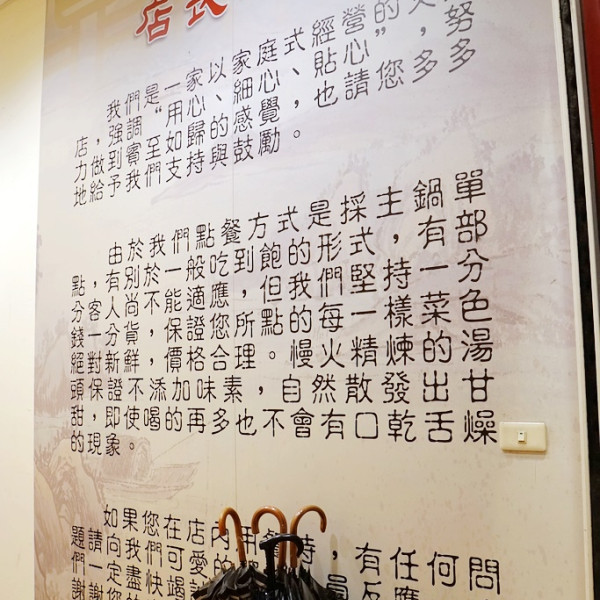 店長
我們是一家以家庭式經營的火
店，強調“用心、細心、貼心”，努
力做到賓至如歸的感覺，也請您多多
地給予我們支持與鼓勵。
由於我們點餐方式是採主鍋單
點，有別於一般吃到飽的形式，有部
分客人尚不能適應，但我們堅持一分
錢一分貨，保證您所點的每一樣菜色
絕對新鮮，價格合理。慢火精煉的湯
頭保證不添加味素，自然散發出甘
甜，即使喝的再多也不會有口乾舌燥
的現象。
如果您在店內用餐時，有任何問
題請向我們可愛的
們一定盡快竭誠
謝謝您